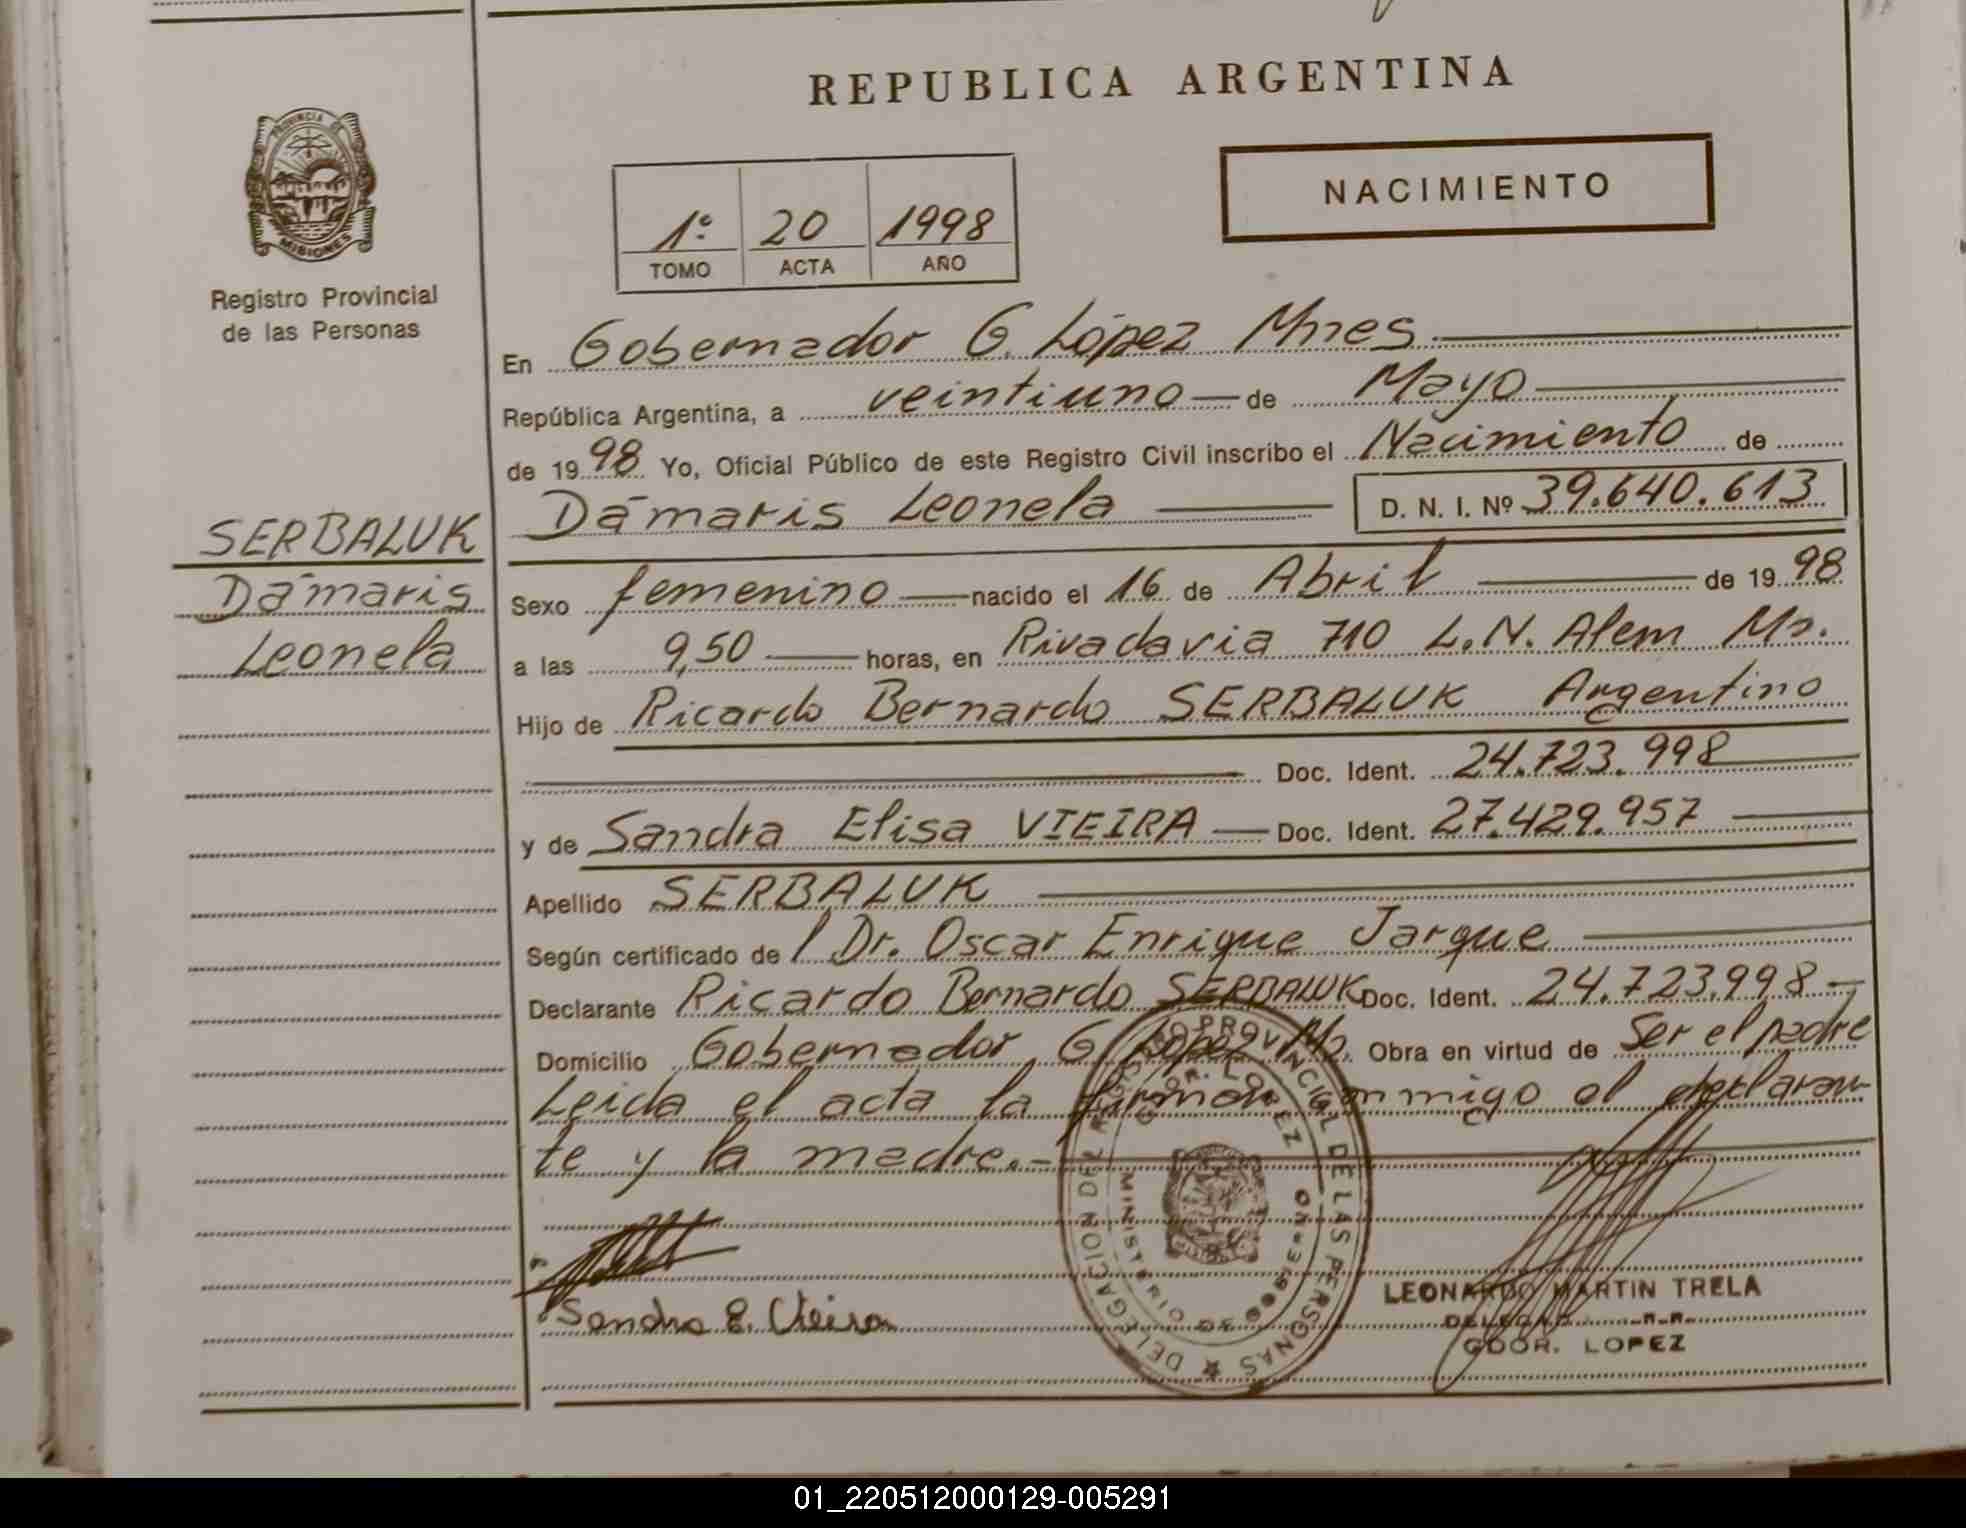 REPUBLICA ARGENTINA
PROVINCIA DE
MISIONES
Registro Provincial
de las Personas
NACIMIENTO
1º 20 1998
TOMO ACTA AÑO
En Gobernador G. López Mnes
República Argentina, a veintiuno de Mayo
de 1998 Yo, Oficial Público de este Registro Civil inscribo el Nacimiento de
Dámaris Leonela D. N. I. Nº 39.640.613
SERBALUK
Dámaris
Leonela
Sexo femenino nacido el 16 de Abril de 1998
a las 9,50 horas, en Rivadavia 710 L.N. Alem Ms.
Hijo de Ricardo Bernardo SERBALUK Argentino
Doc. Ident. 24.723.998
y de Sandra Elisa VIEIRA Doc. Ident. 27.429.957
Apellido SERBALUK
Según certificado de l Dr. Oscar Enrique Jarque
Declarante Ricardo Bernardo SERBALUK Doc. Ident. 24.723.998
Domicilio Gobernador G López Ms. Obra en virtud de Ser el padre
Leida el acta la firman conmigo el declaran
te y la madre.-
DELEGACION DEL REGISTRO PROVINCIAL DE LAS PERSONAS
GDOR. LOPEZ
MINISTERIO DE GOBIERNO
Sandra E. Vieira
LEONARDO MARTIN TRELA
GDOR. LOPEZ
01_220512000129-005291